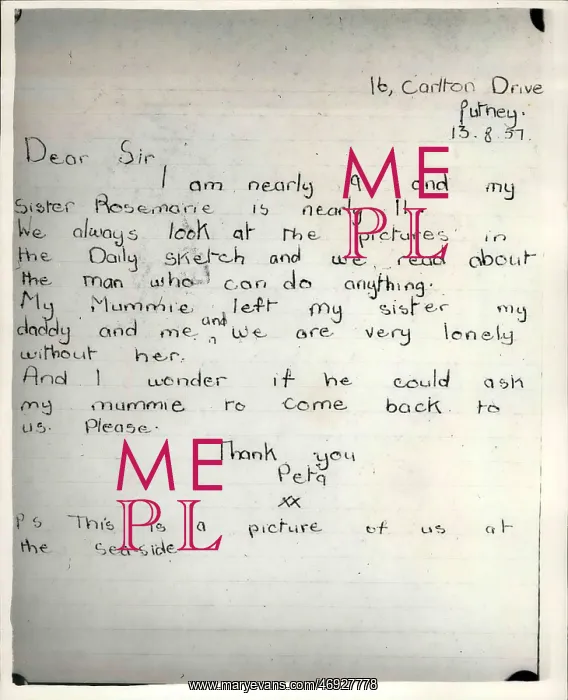 16, Carlton Drive
Putney.
13. 8. 37.
Dear Sir
I am nearly 9 and my
Sister Rosemarie is nearly 11
We always look at the pictures in
the Daily sketch and we read about
the man who can do anything.
My Mummie left my sister my
daddy and me and we are very lonely
without her.
And I wonder if he could ask
my mummie to come back to
us. Please.
Thank you
Peta
xx
PS This is a picture of us at
the seaside
ME
PL
ME
PL
www.maryevans.com/46927778